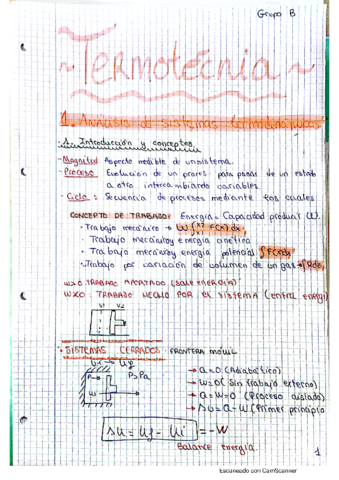 Grupo B
~Termotécnia~
1. Análisis de sistemas termodinámicos
1. Introducción y conceptos.
-Magnitud Aspecto medible de un sistema.
-Proceso: Evolución de un proces para pasar de un estado
a otro intercambiando variables.
-Ciclo: Secuencia de procesos mediante los cuales
CONCEPTO DE TRABAJO: Energía = Capacidad producir W.
• Trabajo mecánico → W ∫ F(x) dx
• Trabajo mecánico y energía cinética
• Trabajo mecánico y energía potencial ∫F(x)dx
• Trabajo por variación de volumen de un gas →
TRABAJO APORTADO (sale energía)
TRABAJO HECHO POR EL SISTEMA (entra energ
V1 V2
• SISTEMAS CERRADOS: FRONTERA MÓVIL
Ui → Uf
P> Pa
P
W
→ Q=0 (Adiabático)
→ W=0 (Sin trabajo externo)
→ Q=W=0 (Proceso aislado)
→ ΔU = Q-W (Primer principio
ΔU = Uf - Ui = -W
Balance energía.
1
Escaneado con CamScanner